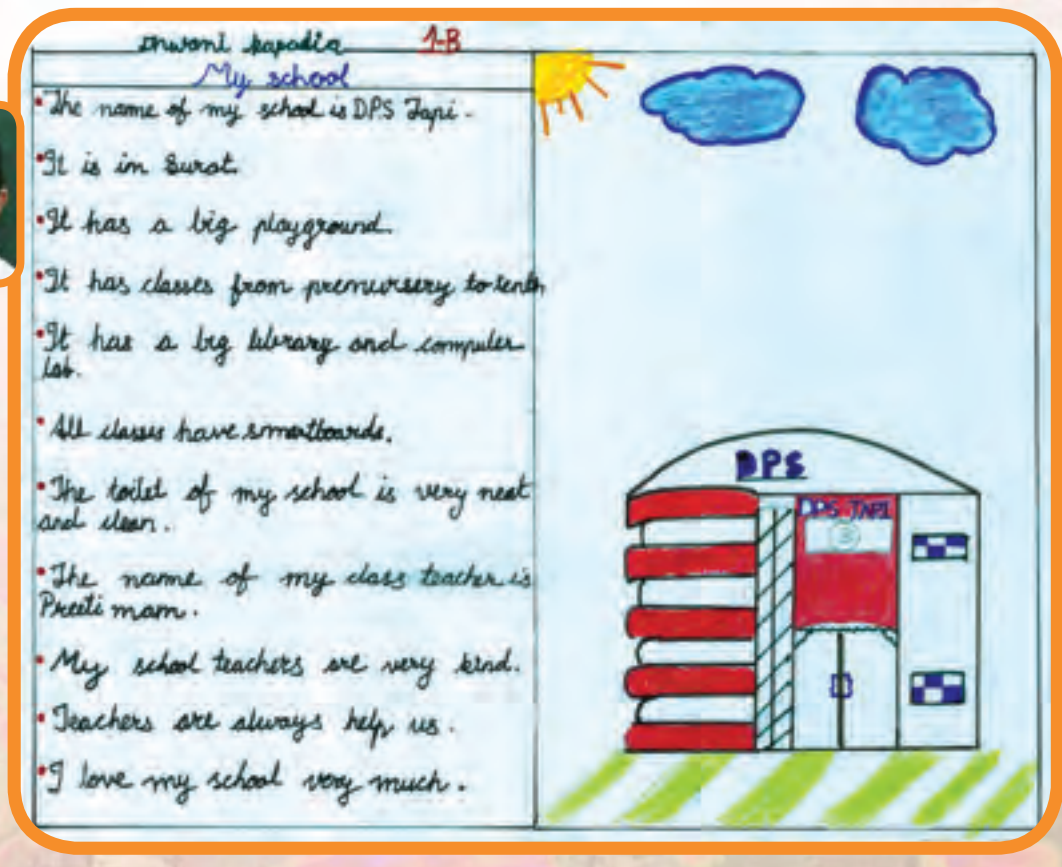 Dhwani Kapadia 1-B
My school
• The name of my school is DPS Tapi.
• It is in Surat
• It has a big playground.
• It has classes from prenursery to tenth
• It has a big library and computer
lab.
• All classes have smartboards.
• The toilet of my school is very neat
and clean.
• The name of my class teacher is
Preeti mam.
• My school teachers are very kind.
• Teachers are always help us.
• I love my school very much.
DPS
DPS TAPI